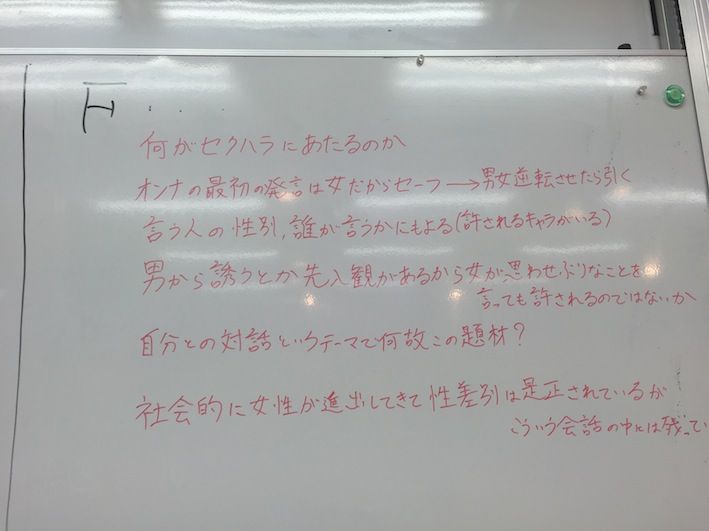 F....
何がセクハラにあたるのか
オンナの最初の発言は女だからセーフ→男女逆転させたら引く
言う人の性別,誰が言うかにもよる(許されるキャラがいる)
男から誘うとか先入観があるから女が思わせぶりなことを
言っても許されるのではないか
自分との対話というテーマで何故この題材?
社会的に女性が進出してきて性差別は是正されているが
こういう会話の中には残ってい